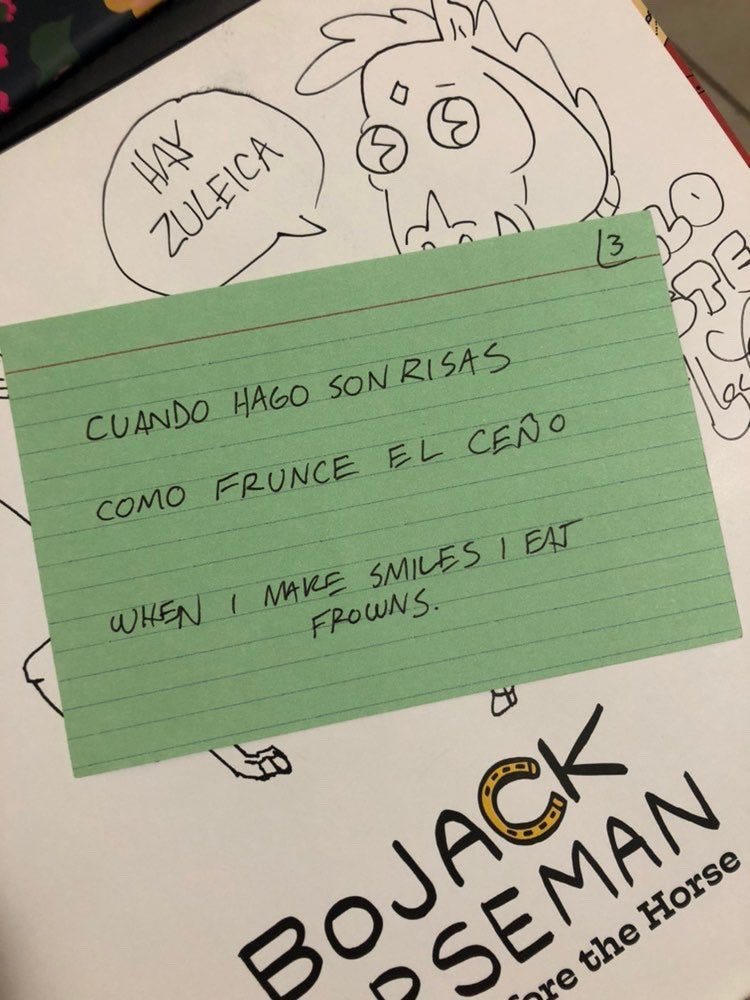 HAY
ZULEICA
3
CUANDO HAGO SONRISAS
COMO FRUNCE EL CEÑO
WHEN I MAKE SMILES I EAT
FROWNS.
BOJACK
RSEMAN
ore the Horse